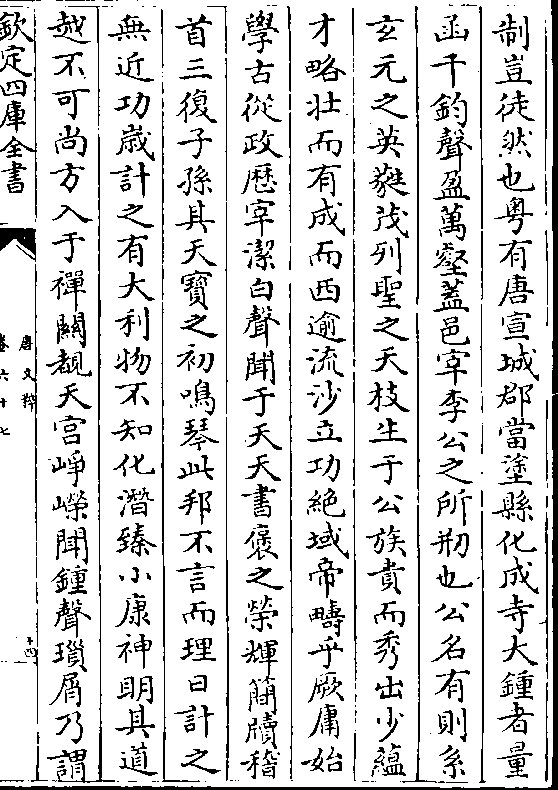 制豈徒然也粤有唐宣城郡當塗縣化成寺大鍾者量
函千鈞聲盈萬壑蓋邑宰李公之所刱也公名有則系
玄元之英蕤茂列聖之天枝生于公族貴而秀出少藴
才略壯而有成而西逾流沙立功絶域帝疇乎厥庸始
學古從政歴宰潔白聲聞于天天書褒之榮輝簡牘稽
首三復子孫其天寳之初鳴琴此邦不言而理日計之
無近功歳計之有大利物不知化潛臻小康神明其道
越不可尚方入于禪關覩天宫崢嶸聞鍾聲瑣屑乃謂
欽定四庫全書
唐文粹
卷六十七
十四